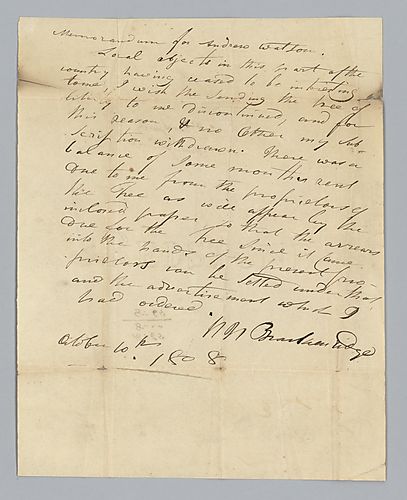 Memorandum for Andrew Watson.
Local objects in this part of the
country having ceased to be interesting
to me, I wish the sending the tree of
liberty to me discontinued, and for
this reason, & no other my sub-
scription withdrawn. There was a
balance of some months rent
due to me from the proprietors of
the Tree as will appear by the
inclosed paper so that the arrears
due for the Tree since it came
into the hands of the present pro-
prietors can be settled under that
and the advertisement which I
had ordered.
H H Brackenridge
October 10th 1808